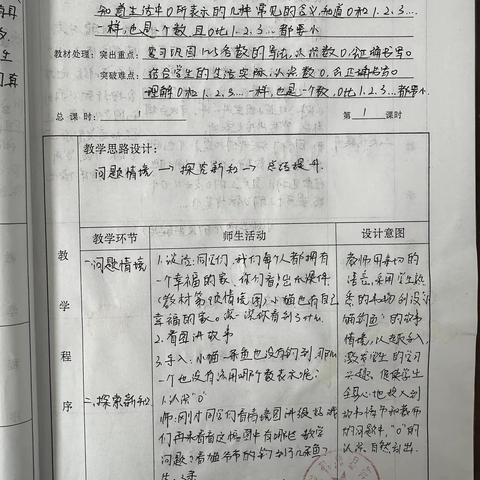 知道生活中0所表示的几种常见的含义,知道0和1.2.3…
一样,也是一个数且0比1.2.3…都要小
教材处理:突出重点:复习巩固1~5各数的写法,认识数0,会正确书写。
突破难点:结合学生的生活实际,认识数0,会正确书写。
理解0和1.2.3…一样,也是一个数,0比1.2.3…都要小.
总课时: 1 第 1 课时
教学思路设计:
问题情境→探究新知→总结提升.
教学程序
教学环节 师生活动 设计意图
一.问题情境
1.谈话:同学们,我们每个人都拥有
一个幸福的家,你们看!出示课件
(教材第 情境图)小猫也有自己
幸福的家。说一说你看到了什么
2.看图讲故事
3.导入:小猫一条鱼也没有钓到,
一个也没有该用哪个数表示呢?
二、探索新知
1.认识"0"
师:刚才同学们看情境图讲得很好,
们再来看看这幅图中有哪些数学
问题?看猫爷爷的钓到了几条鱼?
生:3条
教师用亲切的
语言,采用学生熟
悉的 创设"小
猫钓鱼"的故事
情境,以趣导入,
激发学生的学习
兴趣,促使学生
全身心地投入到
故事情节和教师
的问题中,"0"的
认识自然引出.